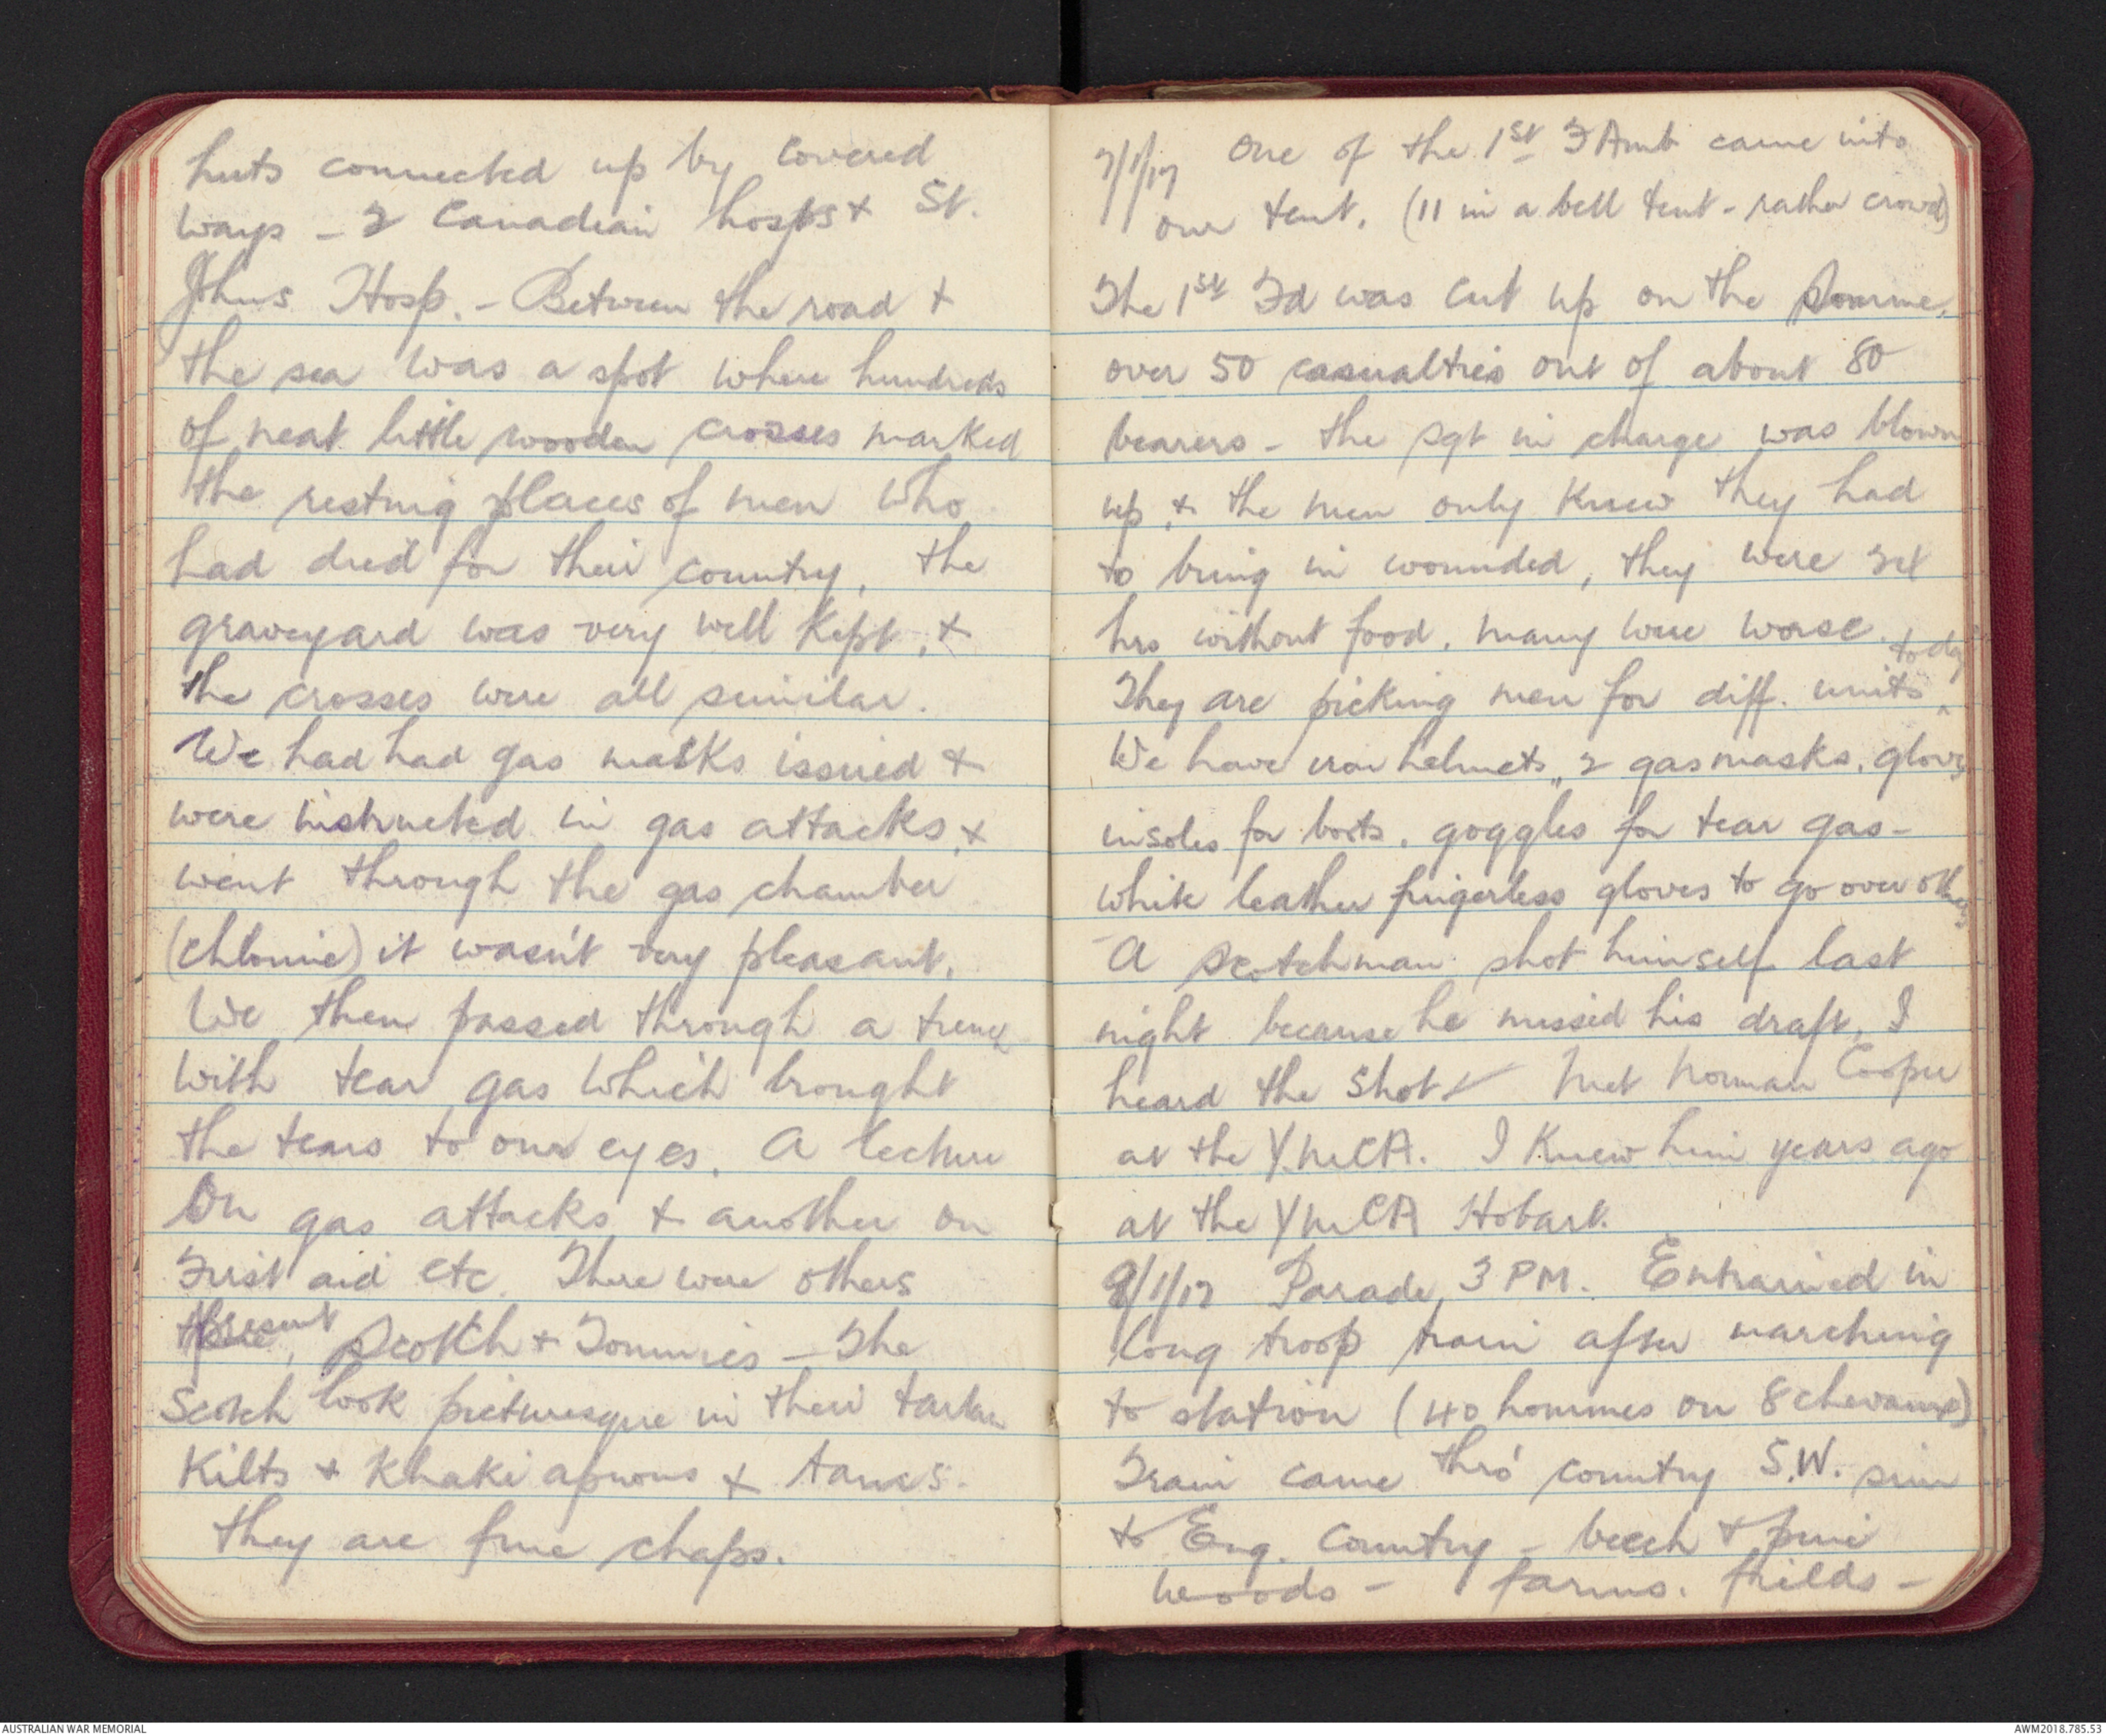 huts connected up by covered
ways - 2 Canadian hosps & St.
Jhns Hosp. - Between the road &
the sea was a spot where hundreds
of neat little wooden crosses marked
the resting places of men who
had died for their country, the
graveyard was very well kept, &
the crosses were all similar.
We had had gas masks issued &
were instructed in gas attacks, &
went through the gas chamber
(chlorine) it wasn't very pleasant.
We then passed through a trench
with tear gas which brought
the tears to our eyes. A lecture
on gas attacks & another on
First aid etc. There were others
present, Scotch & Tommies - The
Scotch look picturesque in their tartan
Kilts & Khaki aprons & tams.
They are fine chaps.
7/1/17 One of the 1st F Amb came into
our tent. (11 in a bell tent - rather crowd)
The 1st Fd was cut up on the Somme,
over 50 casualties out of about 80
bearers - the sgt in charge was blown
up, & the men only knew they had
to bring in wounded, they were 24
hrs without food, many were worse.
They are picking men for diff. units today
We have iron helmets, 2 gas masks, gloves
insoles for boots, goggles for tear gas -
white leather fingerless gloves to go over others
- A Scotchman shot himself last
night because he missed his draft, I
heard the shot. Met Norman Cooper
at the YMCA. I knew him years ago
at the YMCA Hobart.
9/1/17 Parade, 3 PM. Entrained in
long troop train after marching
to station (40 hommes ou 8 chevaux)
Train came thro' country S.W. sim
to Eng. country - beech & pine
woods - farms. fields -
AUSTRALIAN WAR MEMORIAL
AWM2018.785.53